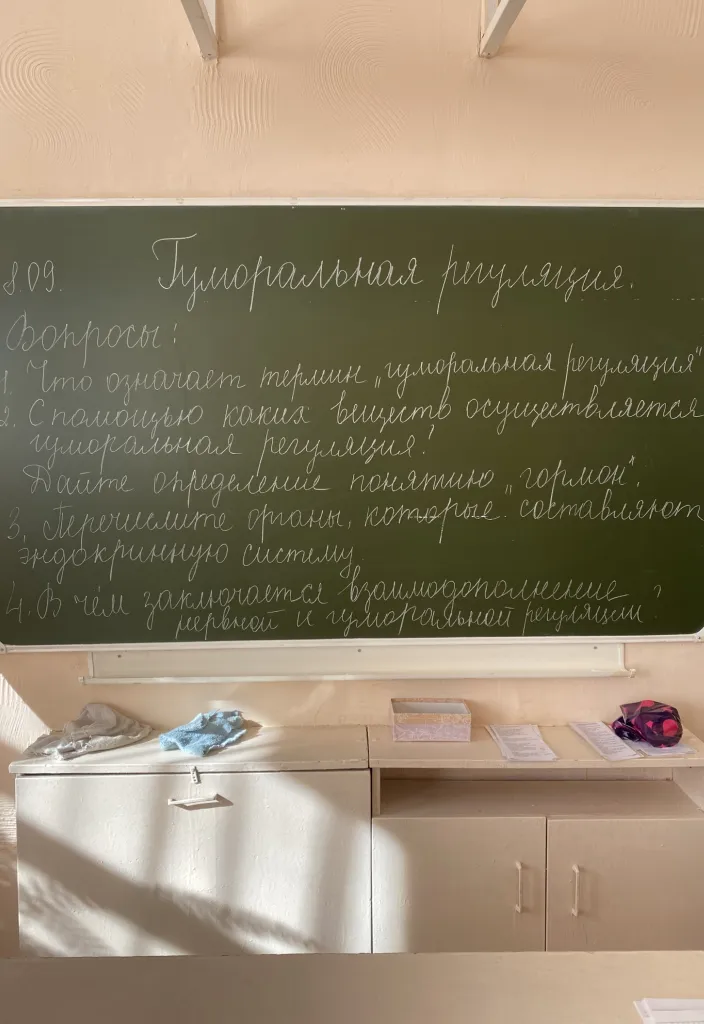 8.09. Гуморальная регуляция.
Вопросы:
1. Что означает термин „гуморальная регуляция"
2. С помощью каких веществ осуществляется
гуморальная регуляция?
Дайте определение понятию „гормон".
3. Перечислите органы, которые составляют
эндокринную систему.
4. В чём заключается взаимодополнение
нервной и гуморальной регуляции?